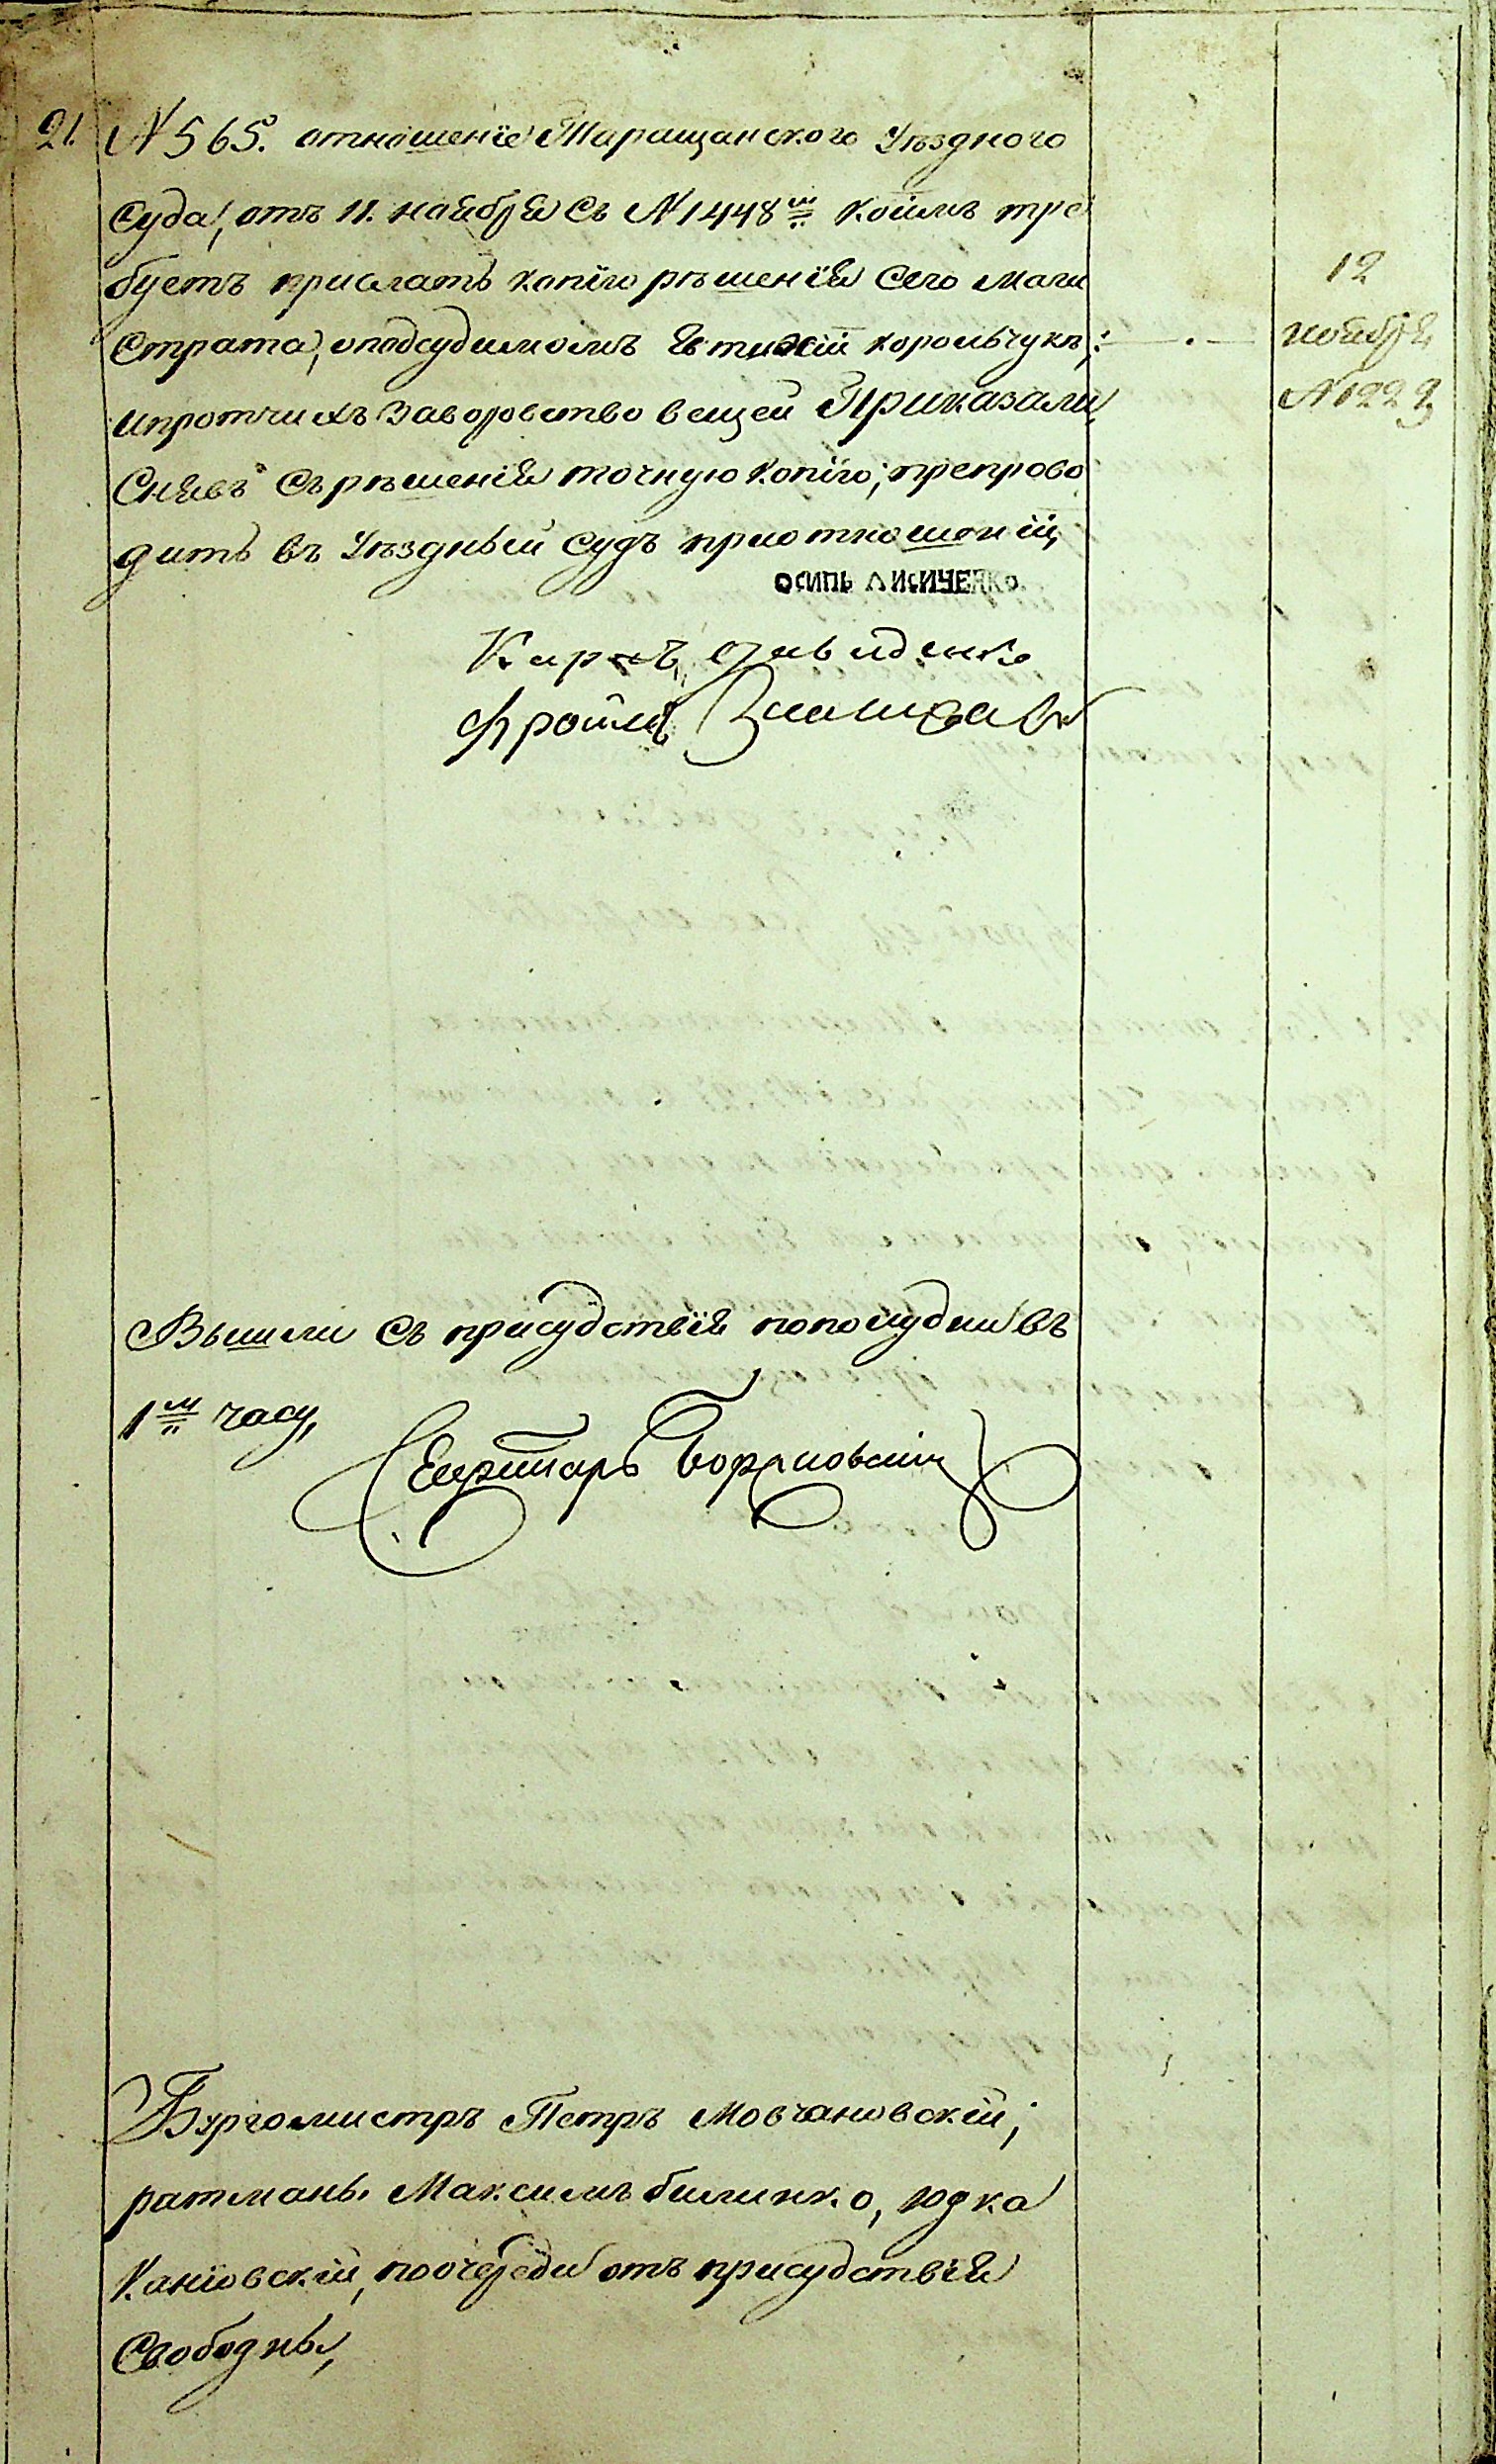 21. N 565. отношеніе Таращанского Уѣздного
Суда, отъ 11. ноября съ N 1448мъ коимъ тре
буетъ прислать копію рѣшенія сего маги
страта, оподсудимомъ корольчукѣ,
ипротчихъ Заворовство вещей Приказали,
Снявъ Съ рѣшенія точную копію, препрово
дить въ Уѣздный Судъ приотношеніи,
12
ноября
N 1229
осипь лисиченко
Карпъ давиденко
фроимъ
Вышли Съ присудствія пополудни въ
1мъ часу,
Секретарь
Бургомистръ Петръ Мовчановскій,
ратманы Максимъ билинко, юдка
Каніовскій, поочереди отъ присудствія
Свободны,